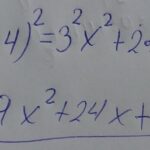 4)²=3²x²+2
9x²+24x+